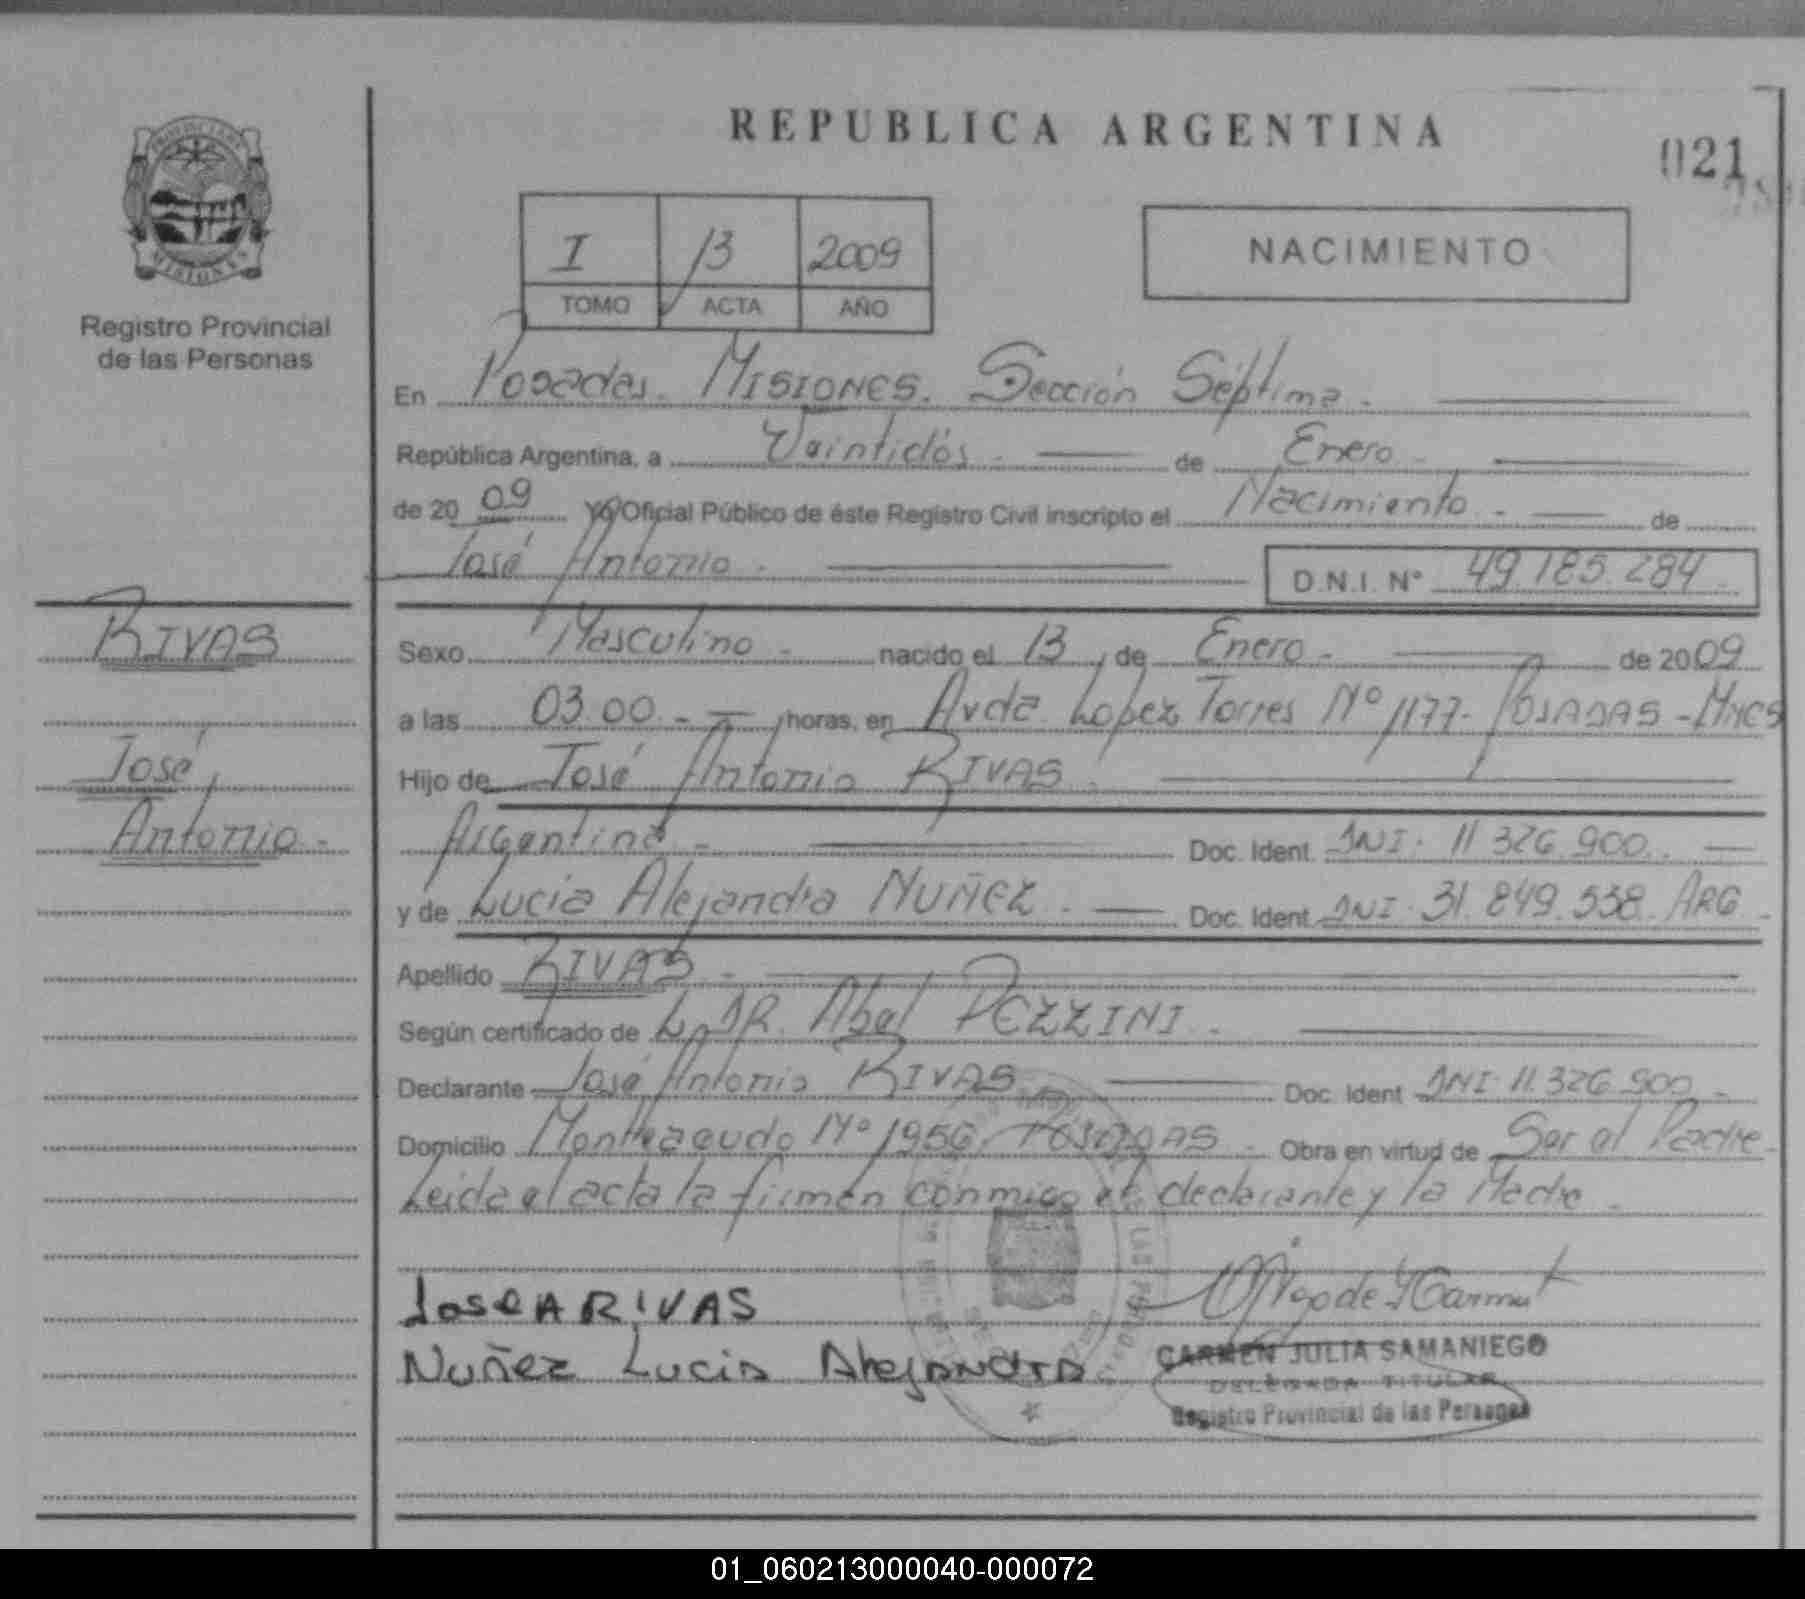 REPUBLICA ARGENTINA
021
PROVINCIA DE
MISIONES
Registro Provincial
de las Personas
I 13 2009
TOMO ACTA AÑO
NACIMIENTO
En Posadas. MISIONES. Sección Séptima.
República Argentina, a Veintidós - de Enero -
de 2009 Yo Oficial Público de éste Registro Civil inscripto el Nacimiento - de
José Antonio - D.N.I. N° 49.185.284 -
RIVAS
José
Antonio -
Sexo Masculino - nacido el 13 de Enero - de 2009
a las 03.00 - horas, en Avda. Lopez Torres N° 1177 - POSADAS - MNES
Hijo de José Antonio RIVAS -
Argentina - Doc. Ident. DNI. 11.326.900. -
y de Lucia Alejandra NUÑEZ - Doc. Ident. DNI. 31.849.538. ARG -
Apellido RIVAS -
Según certificado de L. DR. Abel PEZZINI -
Declarante José Antonio RIVAS Doc. Ident DNI 11.326.900 -
Domicilio Monteagudo N° 1956. POSADAS - Obra en virtud de Ser el Padre -
Leida el acta la firman conmigo el declarante y la Madre -
Jose A RIVAS
Nuñez Lucia Alejandra
CARMEN JULIA SAMANIEGO
DELEGADA TITULAR
Registro Provincial de las Personas
01_060213000040-000072